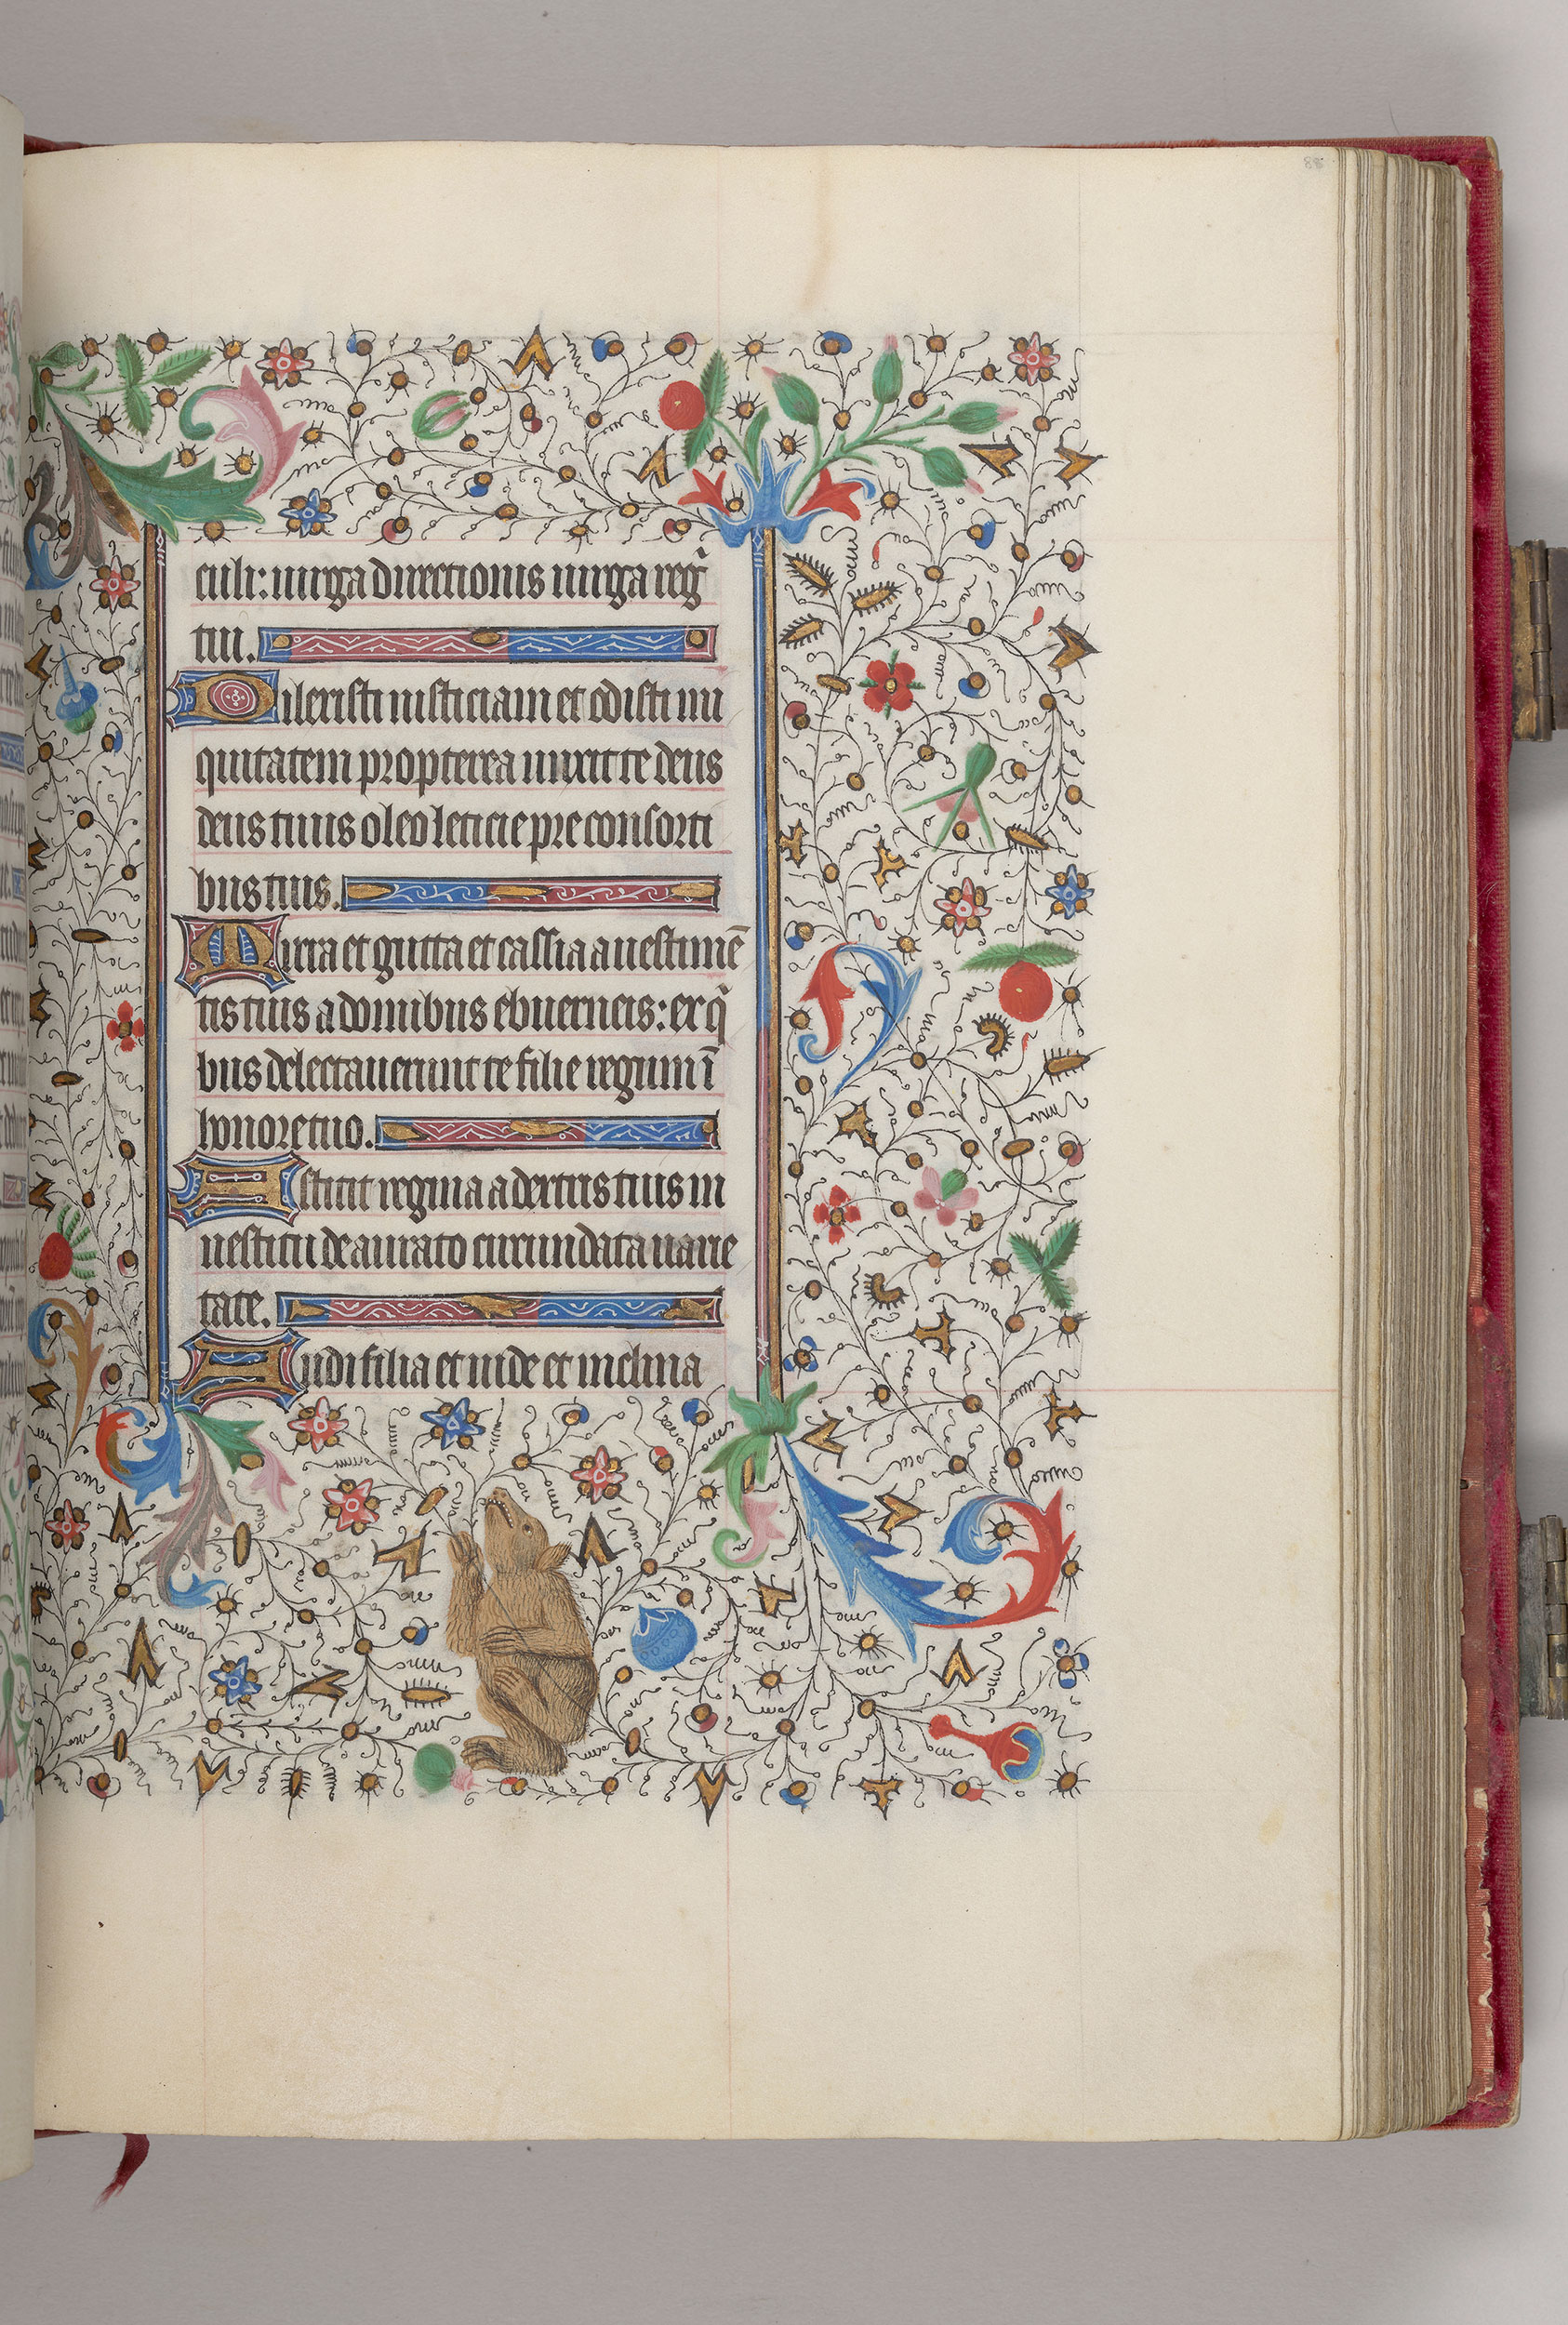 88
culi: uirga directionis uirga reg̃
tui.
Dilexisti iusticiam et odisti ini
quitatem propterea unxit te deus
deus tuus oleo leticie pre consorti
bus tuis.
Mirra et gutta et cassia a uestimē
tis tuis a domibus eburneis: ex q̃
bus delectauerunt te filie regum ī
honore tuo.
Astitit regina a dextris tuis in
uestitu deaurato circundata uarie
tate.
Audi filia et uide et inclina